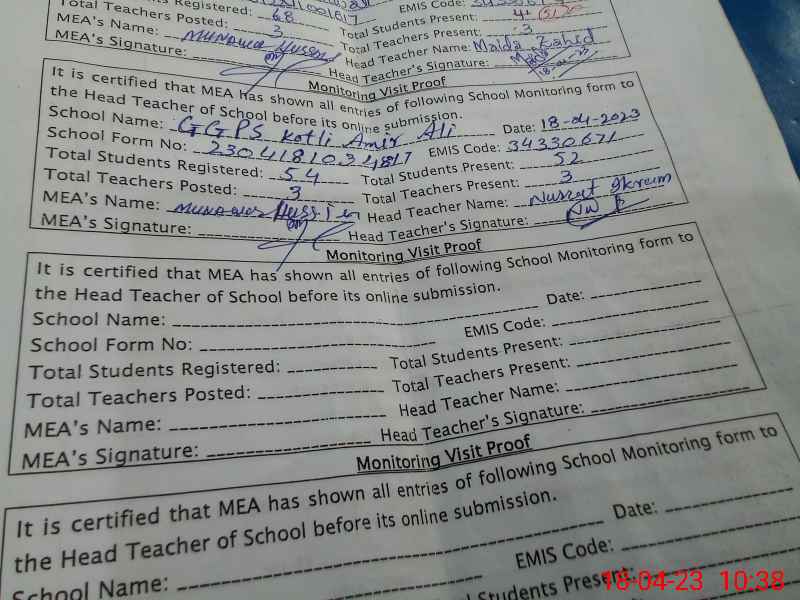 Total Teachers Posted: 68 Total Students Present:
MEA's Name: 3 Total Teachers Present: 3
MEA's Signature: Head Teacher Name: Maida Zahid
Head Teacher's Signature:
18-04-23
Monitoring Visit Proof
It is certified that MEA has shown all entries of following School Monitoring form to
the Head Teacher of School before its online submission.
School Name: GGPS Kotli Amir Ali Date: 18-04-2023
School Form No: 2304181034817 EMIS Code: 34330671
Total Students Registered: 54 Total Students Present: 52
Total Teachers Posted: 3 Total Teachers Present: 3
MEA's Name: Munawar Hussain Head Teacher Name: Nusrat Ikram
MEA's Signature: Head Teacher's Signature:
Monitoring Visit Proof
It is certified that MEA has shown all entries of following School Monitoring form to
the Head Teacher of School before its online submission.
School Name: Date:
School Form No: EMIS Code:
Total Students Registered: Total Students Present:
Total Teachers Posted: Total Teachers Present:
MEA's Name: Head Teacher Name:
MEA's Signature: Head Teacher's Signature:
Monitoring Visit Proof
It is certified that MEA has shown all entries of following School Monitoring form to
the Head Teacher of School before its online submission.
School Name: Date:
EMIS Code:
Students Present:
18-04-23 10:38